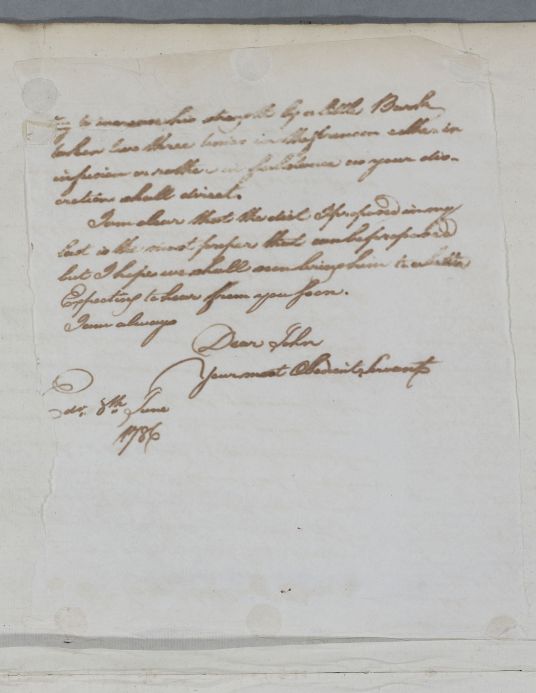 to increase his strength by a little Bark
taken two three times in the forenoon either in
infusion or rather in substance as your dis-
cretion shall direct.
I am clear that the diet I proposed in my
last is the most proper that can be proposed
but I hope we shall soon bring him to a better
Expecting to hear from you soon.
I am always
Dear John
Your most Obedient Servant
Edr. 8th. June
1786